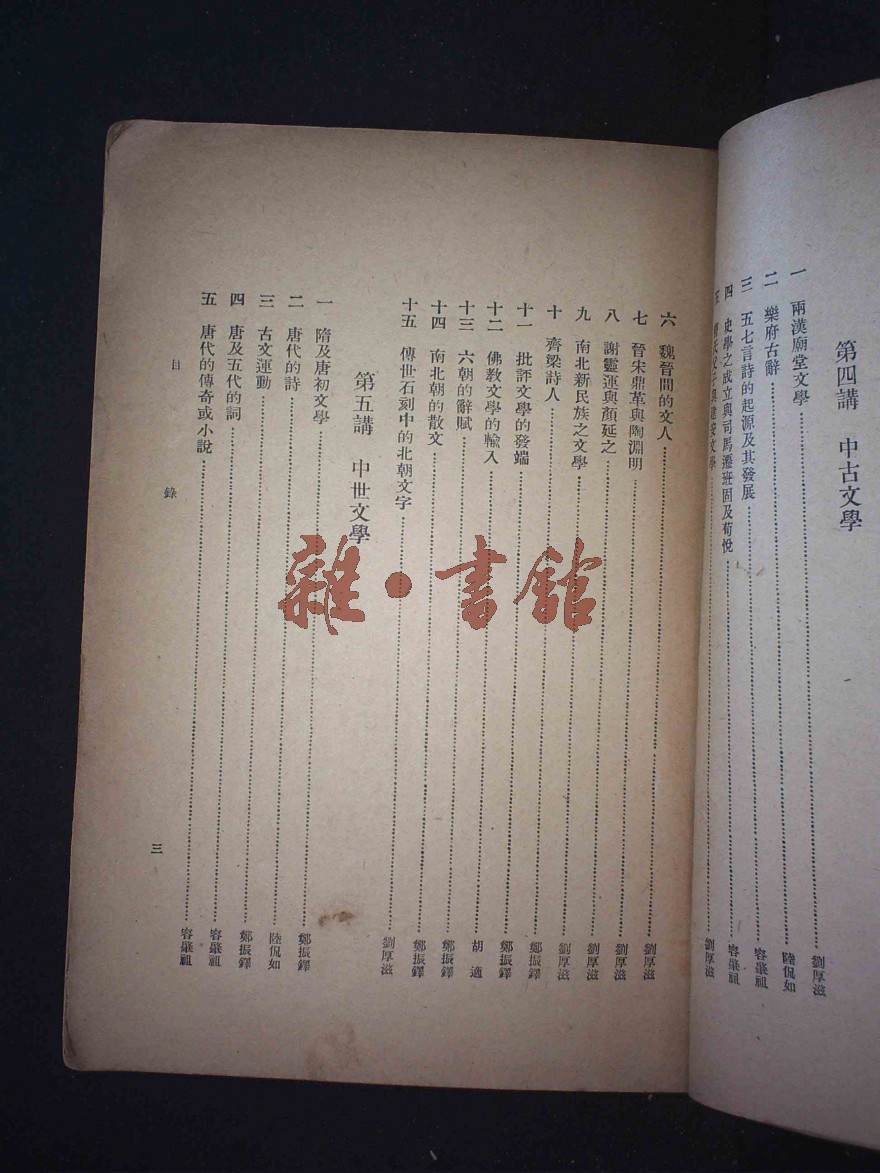 第四講　中古文學
一　兩漢廟堂文學……劉厚滋
二　樂府古辭……陸侃如
三　五七言詩的起源及其發展……容肇祖
四　史學之成立與司馬遷班固及荀悅……容肇祖
五　父子與建安文學……劉厚滋
六　魏晉間的文人……劉厚滋
七　晉宋鼎革與陶淵明……劉厚滋
八　謝靈運與顏延之……劉厚滋
九　南北新民族之文學……劉厚滋
十　齊梁詩人……鄭振鐸
十一　批評文學的發端……鄭振鐸
十二　佛教文學的輸入……胡　適
十三　六朝的辭賦……鄭振鐸
十四　南北朝的散文……鄭振鐸
十五　傳世石刻中的北朝文字……劉厚滋
第五講　中世文學
一　隋及唐初文學……鄭振鐸
二　唐代的詩……陸侃如
三　古文運動……鄭振鐸
四　唐及五代的詞……容肇祖
五　唐代的傳奇或小說……容肇祖
目　錄
三
雜·書館